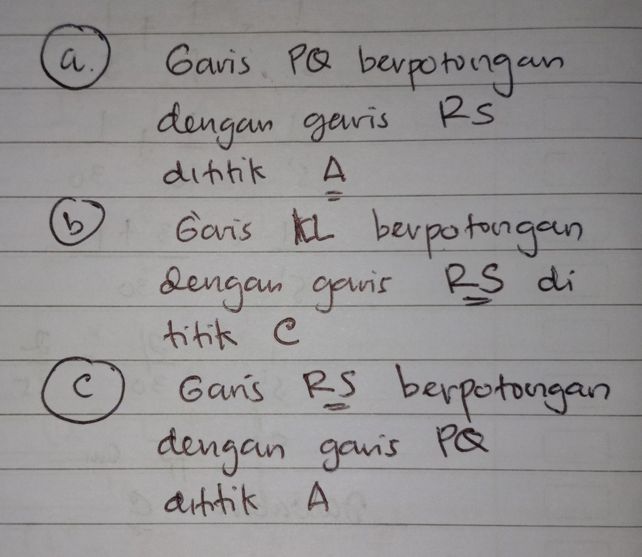 a. Garis PQ berpotongan
dengan garis RS
dititik A
b Garis KL berpotongan
dengan garis RS di
titik C
c Garis RS berpotongan
dengan garis PQ
dititik A